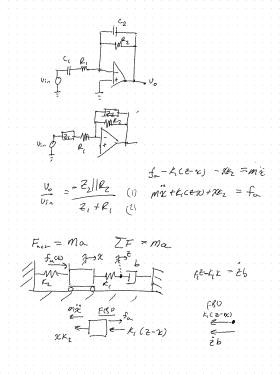 C₂
R₂
C₁ R₁
Vin
Vo
Z₂
R₂
Vin Z₁ R₁
Vo/Vin = - Z₂||R₂ / Z₁ + R₁ (1) (2)
fa - k₁(z-x) - xk₂ = mẍ
mẍ + k₁(z-x) + xk₂ = fa
Fnet = ma ΣF = ma
fa(t) x z b
k₂ k₁
k₁z - k₁x = żb
mẍ FBD fa
xk₂ k₁(z-x)
FBD
k₁(z-x)
żb